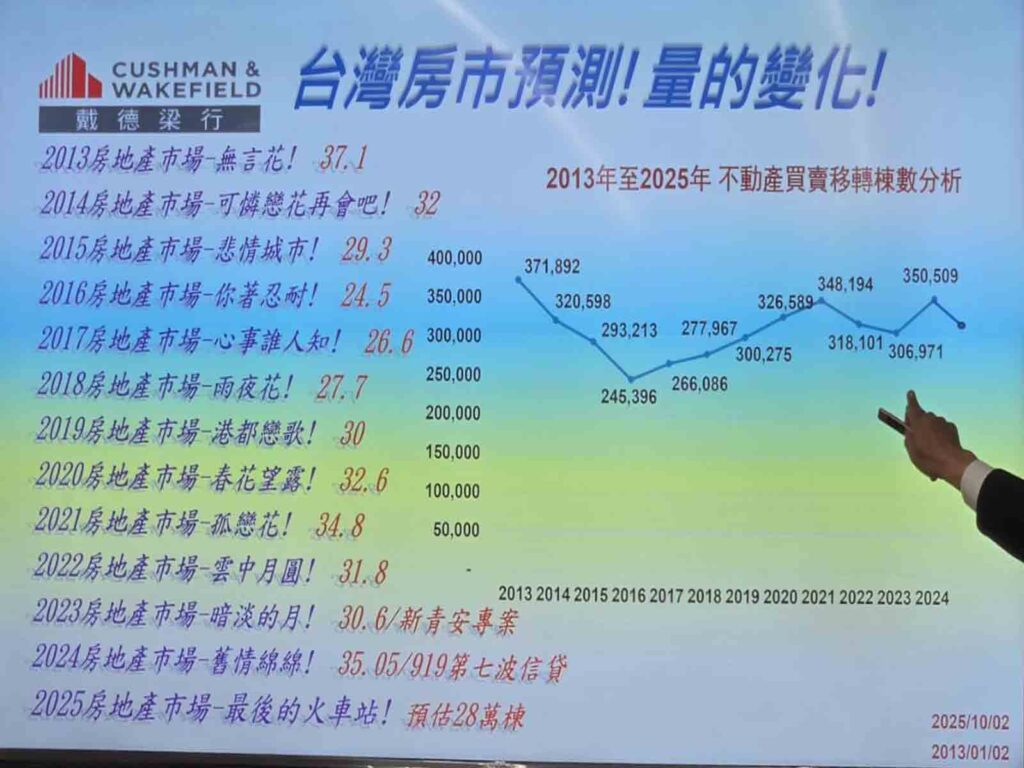 CUSHMAN &
WAKEFIELD
戴德梁行
台灣房市預測!量的變化!
2013房地產市場-無言花! 37.1
2014房地產市場-可憐戀花再會吧! 32
2015房地產市場-悲情城市! 29.3
2016房地產市場-你著忍耐! 24.5
2017房地產市場-心事誰人知! 26.6
2018房地產市場-雨夜花! 27.7
2019房地產市場-港都戀歌! 30
2020房地產市場-春花望露! 32.6
2021房地產市場-孤戀花! 34.8
2022房地產市場-雲中月圓! 31.8
2023房地產市場-暗淡的月! 30.6/新青安專案
2024房地產市場-舊情綿綿! 35.05/919第七波信貸
2025房地產市場-最後的火車站! 預估28萬棟
2013年至2025年 不動產買賣移轉棟數分析
400,000
350,000
300,000
250,000
200,000
150,000
100,000
50,000
-
371,892
320,598
293,213
245,396
266,086
277,967
300,275
326,589
348,194
318,101
306,971
350,509
2013 2014 2015 2016 2017 2018 2019 2020 2021 2022 2023 2024
2025/10/02
2013/01/02